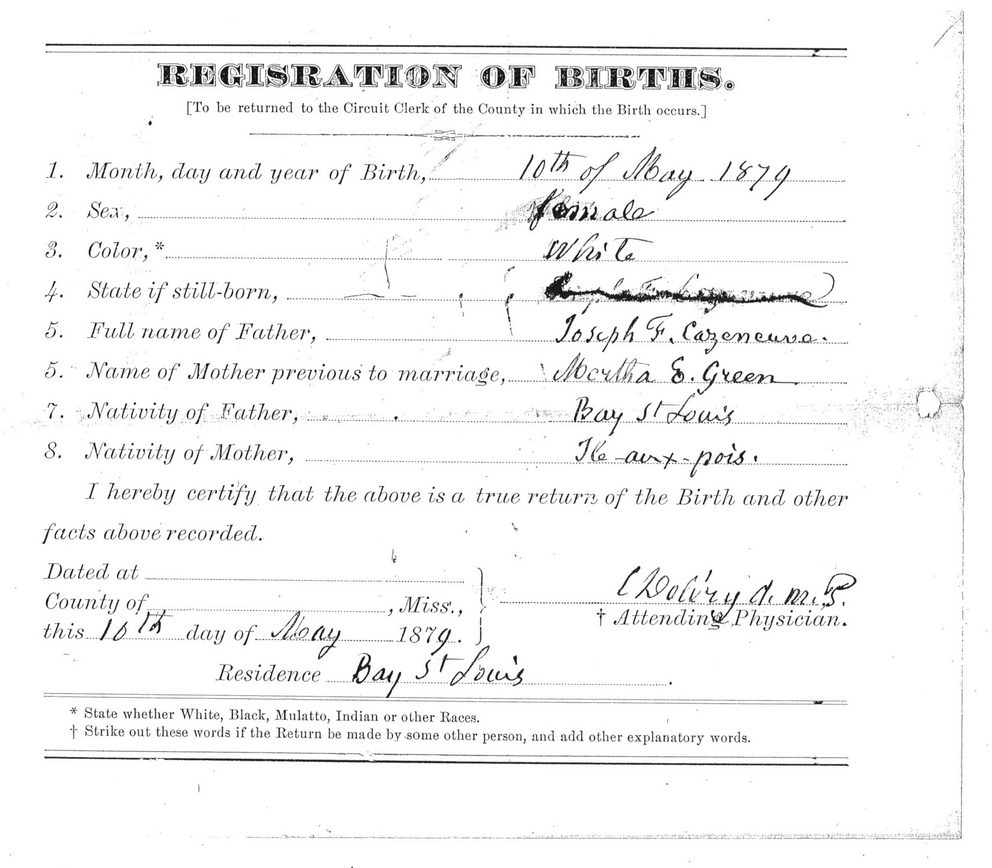 REGISRATION OF BIRTHS.
[To be returned to the Circuit Clerk of the County in which the Birth occurs.]
1. Month, day and year of Birth, 10th of May 1879
2. Sex, female
3. Color,* White
4. State if still-born,
5. Full name of Father, Joseph F. Cazeneuve.
5. Name of Mother previous to marriage, Martha E. Green
7. Nativity of Father, Bay St Louis
8. Nativity of Mother, Ile-aux-pois.
I hereby certify that the above is a true return of the Birth and other
facts above recorded.
Dated at
County of , Miss.,
† Attending Physician.
this 10th day of May 1879.
Residence Bay St Louis.
* State whether White, Black, Mulatto, Indian or other Races.
† Strike out these words if the Return be made by some other person, and add other explanatory words.